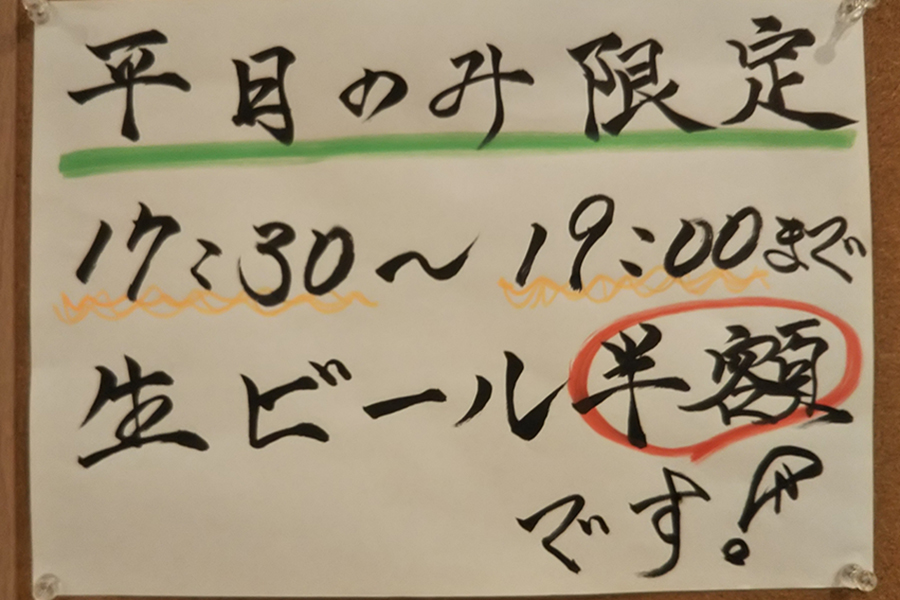 平日のみ限定
17:30〜19:00まで
生ビール半額
です!